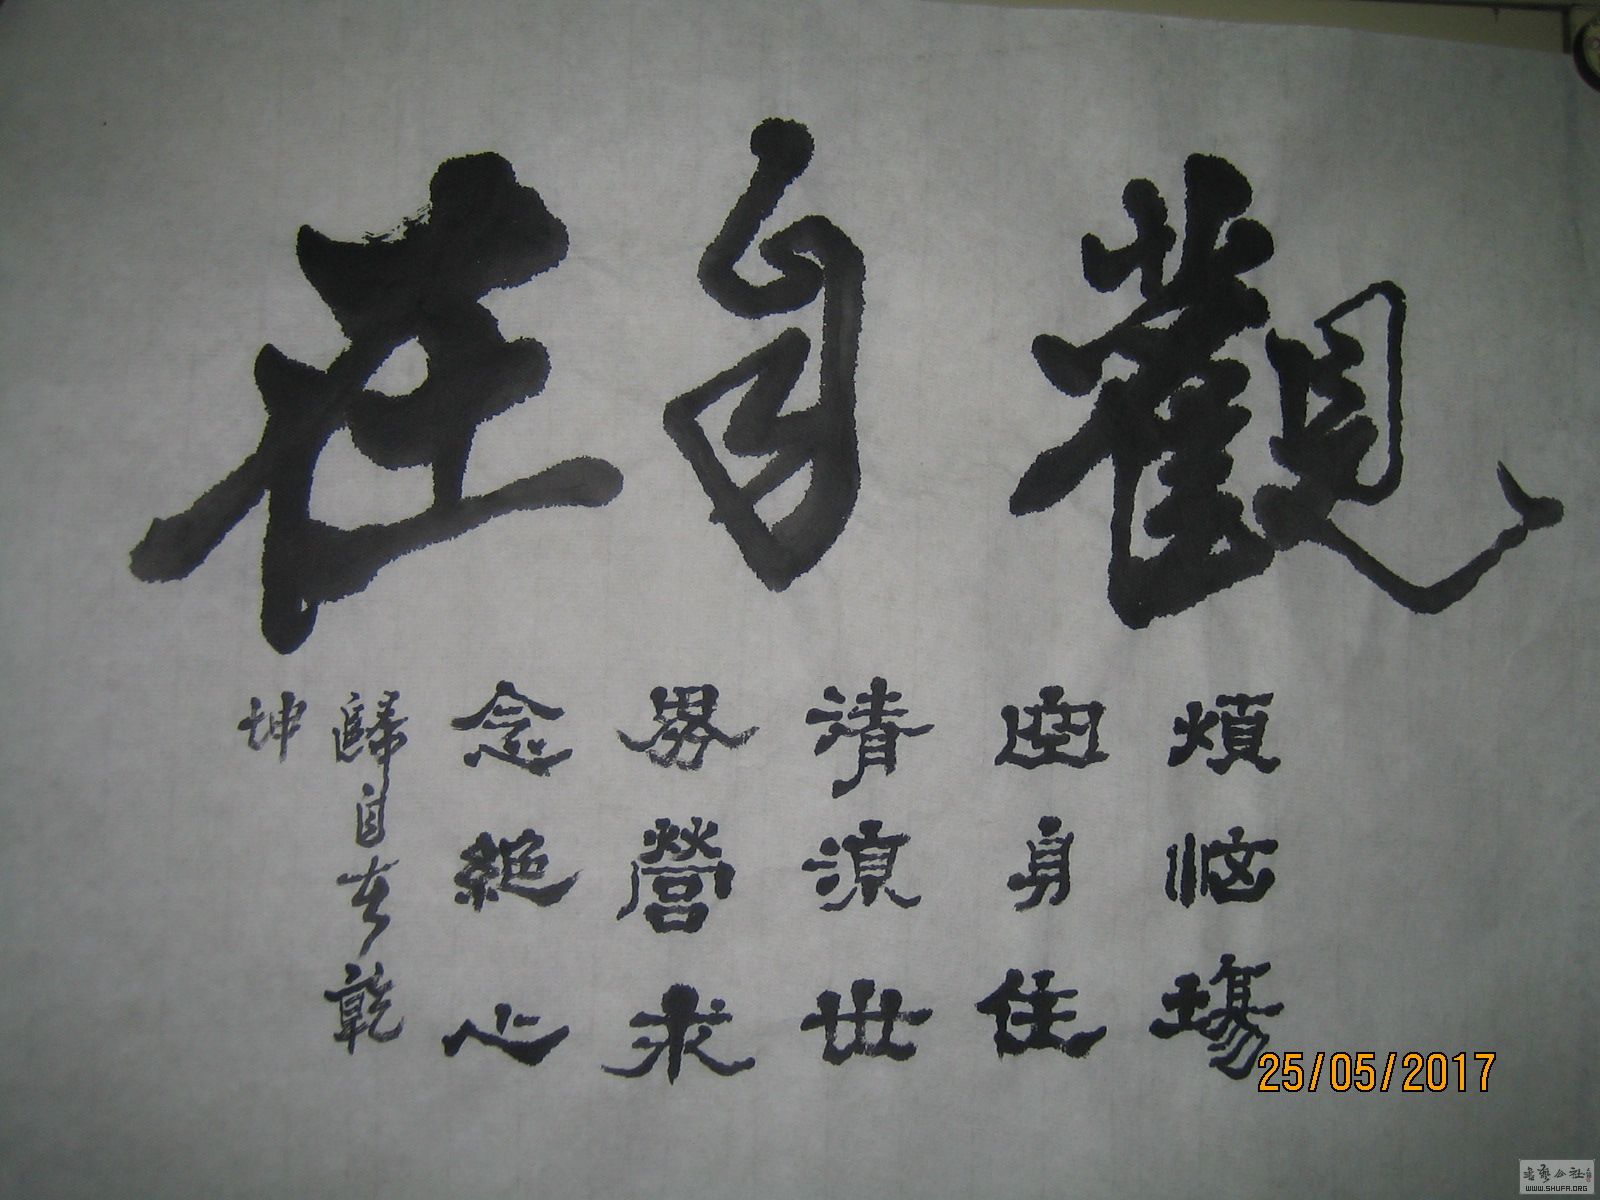 觀自在
煩恼場
空身住
清涼世
界營求
念絕心
歸自在乾
坤
25/05/2017
書藝公社
WWW.SHUFA.ORG